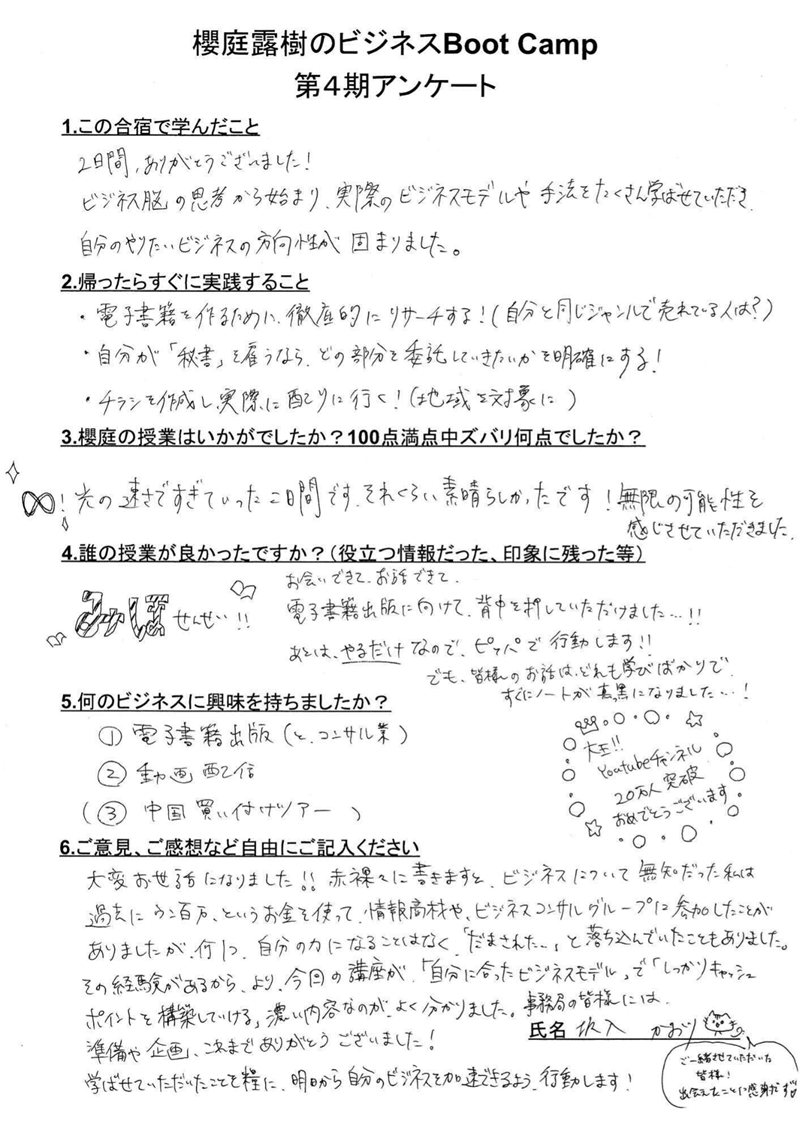 櫻庭露樹のビジネスBoot Camp
第4期アンケート
1.この合宿で学んだこと
2日間、ありがとうございました!
ビジネス脳の思考から始まり、実際のビジネスモデルや手法をたくさん学ばせていただき、
自分のやりたいビジネスの方向性が固まりました。
2.帰ったらすぐに実践すること
・電子書籍を作るために、徹底的にリサーチする!(自分と同じジャンルで売れている人は?)
・自分が「秘書」を雇うなら、どの部分を委託していきたいかを明確にする!
・チラシを作成し、実際に配りに行く!(地域を対象に)
3.櫻庭の授業はいかがでしたか?100点満点中ズバリ何点でしたか?
∞!光の速さですぎていった二日間です。それくらい素晴らしかったです!無限の可能性を
感じさせていただきました。
4.誰の授業が良かったですか?(役立つ情報だった、印象に残った等)
みっぽせんせい!!
お会いできて、お話できて、
電子書籍出版に向けて、背中を押していただけました…!!
あとは、やるだけなので、ピッパで行動します!!
でも、皆様のお話は、どれも学びばかりで、
すぐにノートが真黒になりました…!
5.何のビジネスに興味を持ちましたか?
① 電子書籍出版(と、コンサル業)
② 動画配信
(③ 中国買い付けツアー )
大王!!
Youtubeチャンネル
20万人突破
おめでとうございます
6.ご意見、ご感想など自由にご記入ください
大変お世話になりました!!赤裸々に書きますと、ビジネスについて無知だった私は
過去にウン百万、というお金を使って、情報商材や、ビジネスコンサルグループに参加したことが
ありましたが、何1つ、自分の力になることはなく、「だまされた…」と落ち込んでいたこともありました。
その経験があるから、より、今回の講座が、「自分に合ったビジネスモデル」で「しっかりキャッシュ
ポイントを構築していける」濃い内容なのが、よく分かりました。事務局の皆様には、
準備や企画、これまでありがとうございました!
学ばせていただいたことを糧に、明日から自分のビジネスを加速できるよう、行動します!
氏名 坂入 かおり
ご一緒させていただいた
皆様!
出会えたことに感謝です